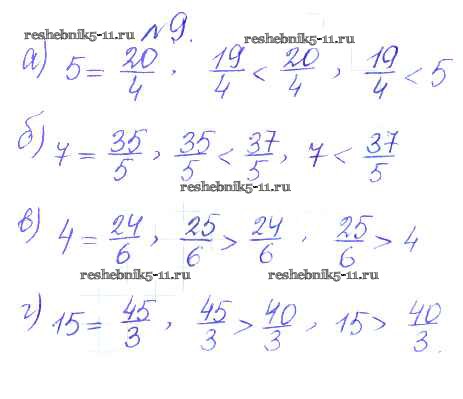 №9.
reshebnik5-11.ru reshebnik5-11.ru
а) 5 = 20/4, 19/4 < 20/4, 19/4 < 5
б) 7 = 35/5, 35/5 < 37/5, 7 < 37/5
reshebnik5-11.ru
в) 4 = 24/6, 25/6 > 24/6, 25/6 > 4
reshebnik5-11.ru reshebnik5-11.ru
г) 15 = 45/3, 45/3 > 40/3, 15 > 40/3.